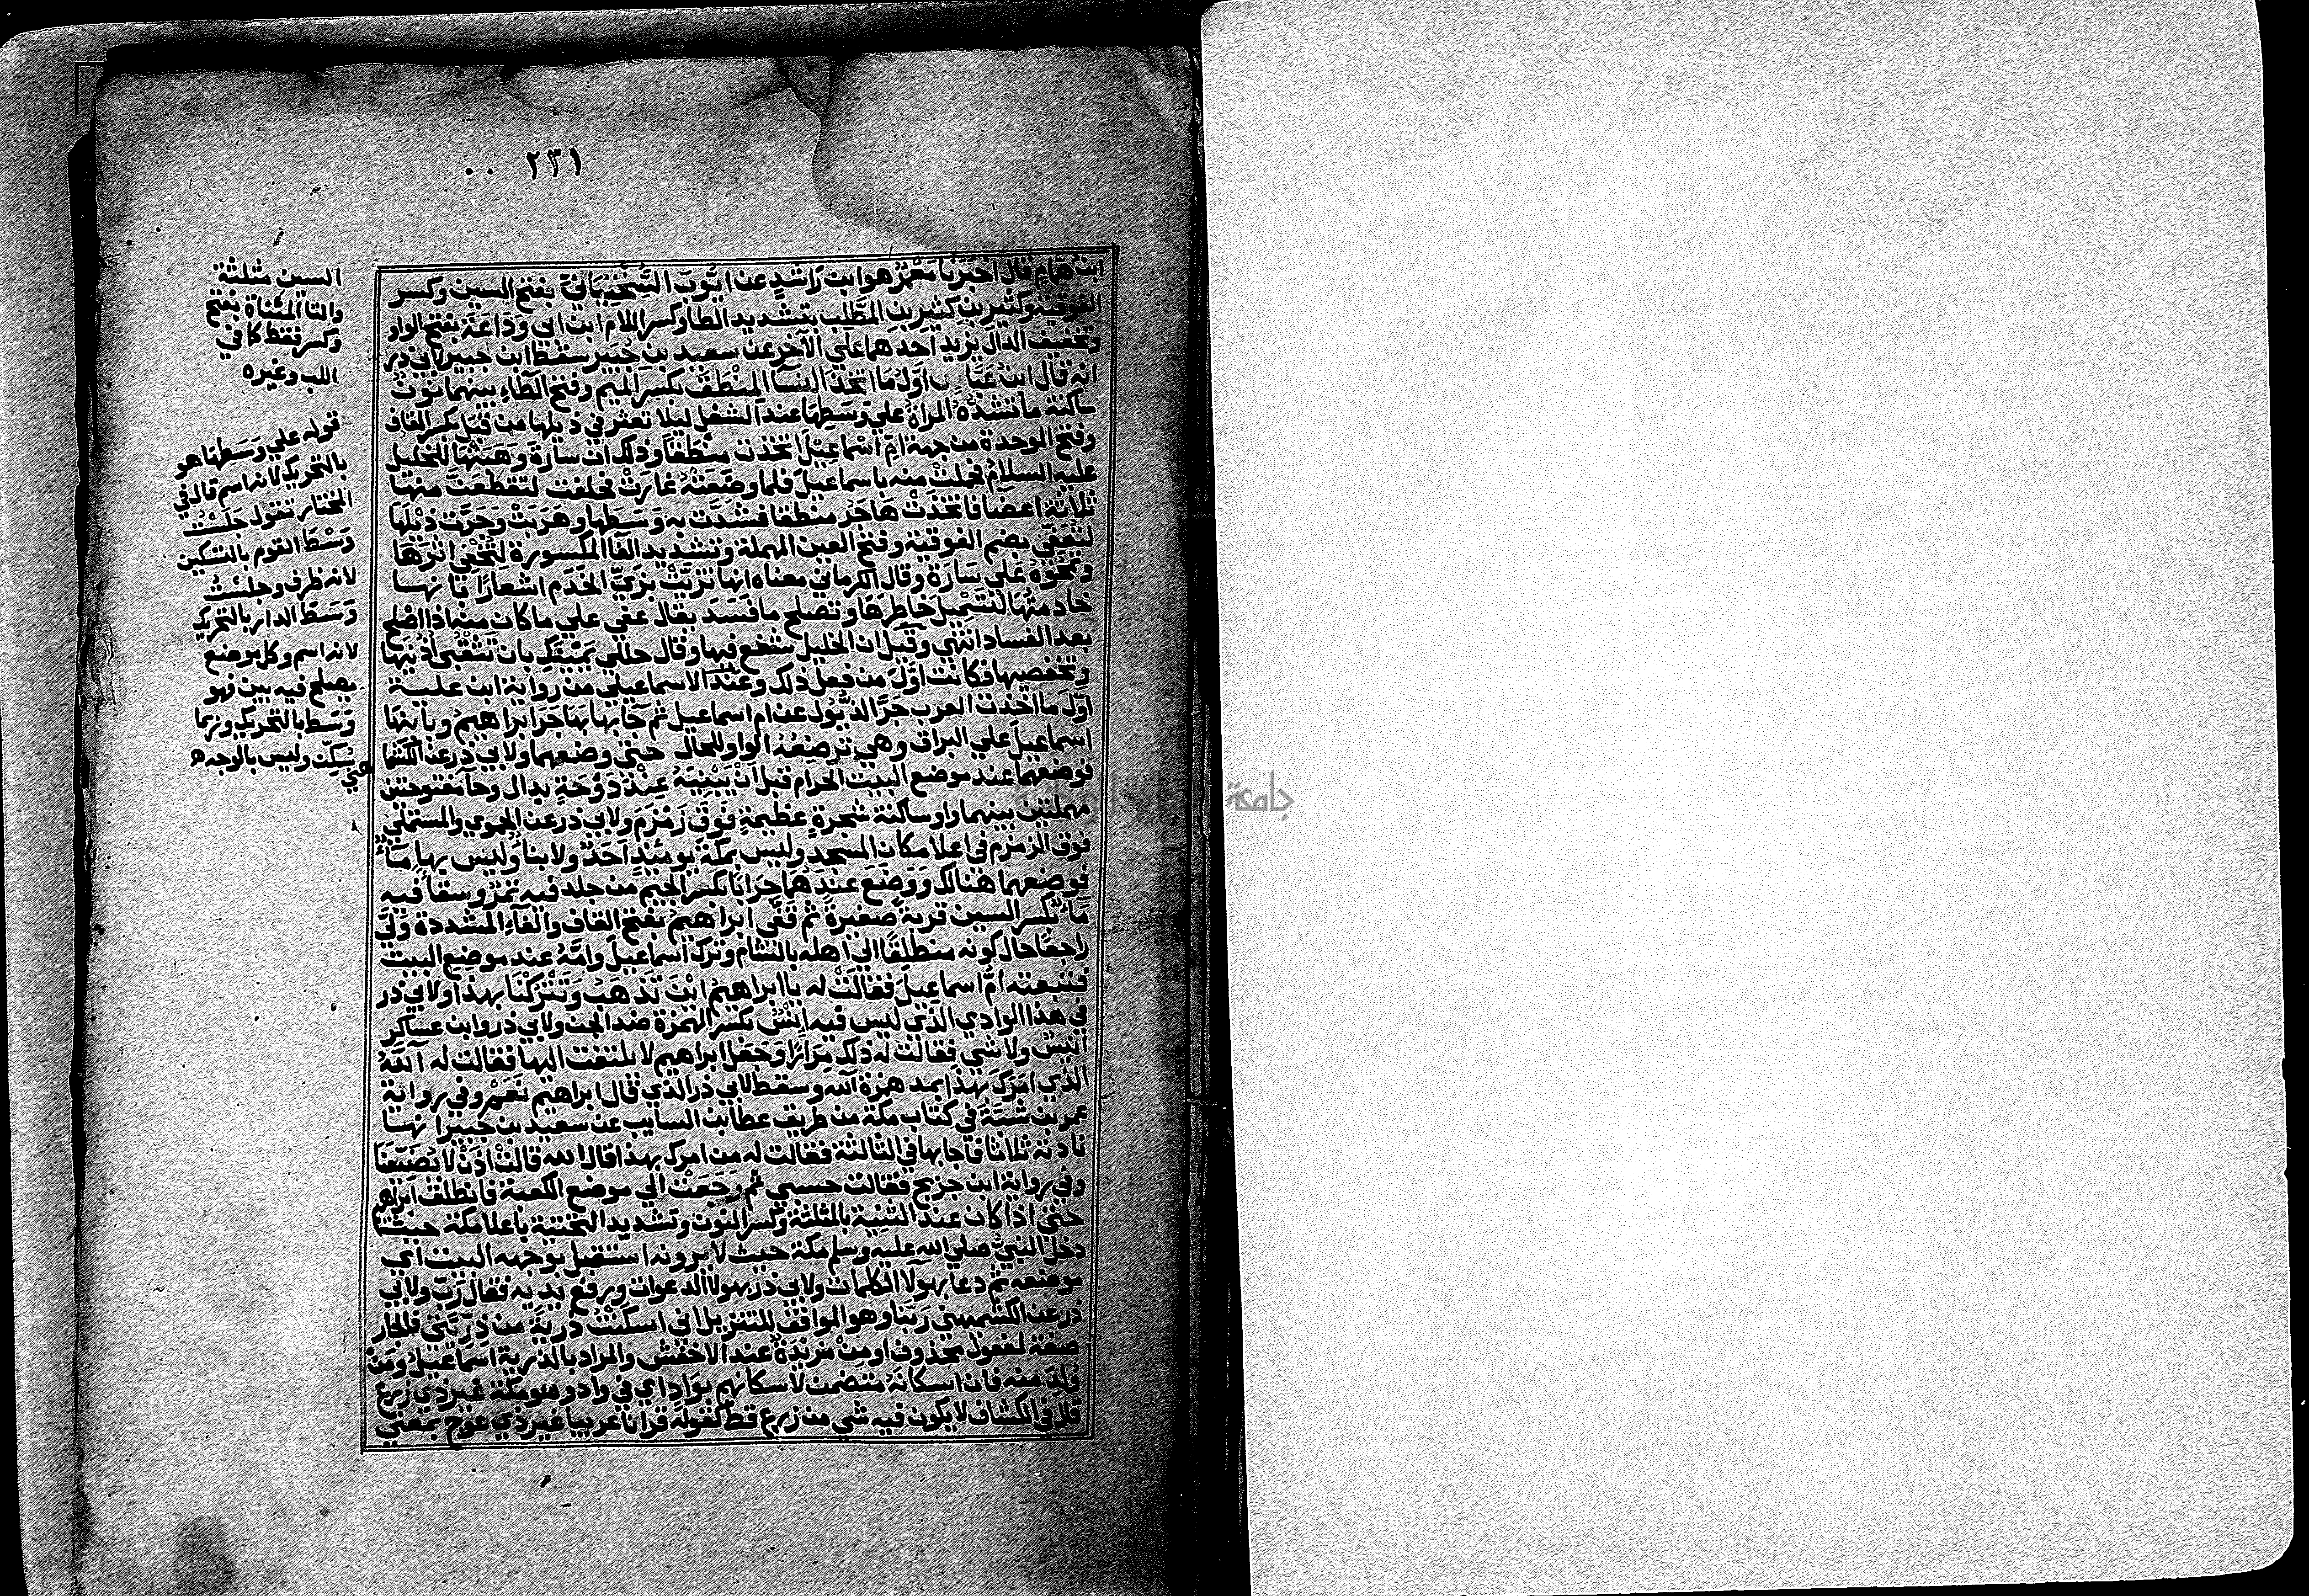 ٢٣١
ابنُ همّامٍ قال أخبرنا مَعْمَرٌ هو ابن رَاشدٍ عن ايّوبَ السَّخْتِيَانيّ بفتح السين وكسر
الفوقية وكثير بن كثير بن المطَّلِب بتشديد الطا وكسر اللام ابن ابي وَدَاعَةَ بفتح الواو
وتخفيف الدال يزيد احدهما علي الآخر عن سعيد بن جُبَير سقط ابن جبير لابي ذر
انه قال ابنُ عبَّاس اَوَّلُ مَا اتخذ النسآ المِنْطَقَ بكسر الميم وفتح الطآء بينهما نون
ساكنة ما تشدُّه المراة علي وَسَطِهَا عند الشغل ليلا تعثر في ذيلها من قِبَل بكسر القاف
وفتح الوحدة من جهة امّ اسْماعيْلَ اتخذت منطَقًا وذلك ان سارةَ وَهَبَتْهَا للخليل
عليه السلام فحملتْ منه باسماعيل فلما وضَعَتْهُ غارَتْ فحلفت لتقطعَنَّ منها
ثلاثة اعضا فاتخذتْ هَاجَرُ منطقا فشدَّت به وسَطها وهَرَبَتْ وَجَرَّت ذيْلَهَا
لتُعَفّي بضم الفوقية وفتح العين المهملة وتشديد الفآ المكسورة لِتُخْفِي اثَرَهَا
وتمحُوَهُ عَلي سَارَةَ وقال الكرماني معناه انها تزيَّتْ بزَيِّ الخَدَم اشعارًا بانها
خادمتُهَا لتسْتَمِيْلَ خاطِرَهَا وتصلح ما فَسَدَ يقال عفي علي ما كان منه اذا اصْلح
بعد الفساد انتهي وقيل ان الخليل شفع فيها وقال حللي يمينَكِ بان تَثْقُبي اُذنيها
وتخفضيها فكانت اوَّلَ من فعل ذلك وعند الاسماعيلي من رواية ابن علية
اوّلَ ما اخذت العرب جَرَّ الذيُول عن ام اسماعيل ثم جآء بها بهَاجَرَ ابراهيمُ وبابنِهَا
اسماعيلَ علي البراق وهي تُرضِعُهُ الواو للحال حتي وضعهما ولابي ذر عن الكشما
فوضعهما عند موضع البيت الحرام قبل انْ يَبْنِيَهُ عِنْدَ دَوْحَةٍ بدال وحا مفتوحتين
مهملتين بينهما واو ساكنة شجرةٍ عظيمةٍ فوقَ زَمْزَمَ ولابي ذر عن الحموي والمستملي
فوق الزمزم في اعلا مكان المسجدِ وليس بمكّة يومَئِذٍ اَحَدٌ ولا بنآءٌ وليس بها مَآءٌ
فوضعهما هنالك وَوَضَعَ عندهما جِرَابًا بكسر الجيم من جلد فيه تمْرٌ وسِقآءً فيه
مآءٌ بكسر السين قربة صغيرة ثم قَفّي ابراهيمُ بفتح القاف والفآءِ المشددة وَلّي
راجعًا حال كونه منطلِقًا الي اهله بالشام وترك اسماعيلَ وامَّهُ عند موضع البيت
فتبعته امُّ اسماعيلَ فقالَتْ له يا ابراهيمُ اينَ تَذهَبُ وَتَتْرُكْنَا بهذا ولابي ذر
في هذا الوادي الذي ليس فيه اِنْسٌ بكسر الهمزة ضد الجن ولابي ذر وابن عساكر
انيسٌ ولا شي فقالت له ذلك مِرَارًا وَجَعَلَ ابراهيم لا يلتفت اليها فقالت له آللهُ
الذي امَرَكَ بهذا بمد همزة الله وسقط لابي ذر الذي قال ابراهيم نَعَمْ وفي رواية
عمر بن شَبَّةَ في كتاب مكة من طريق عطا بن السايب عن سعيد بن جبير انها
نادته ثلاثا فاجابها في الثالثة فقالت له من امرك بهذا قال الله قالتْ اذَنْ لا يُضَيّعَنَا
وفي رواية ابن جريج فقالت حسبي ثم رَجَعَتْ الي موضع الكعبة فانطلقَ ابراهيم
حتي اذا كان عند الثنِيّة بالمثلثة وكسر النون وتشديد التحتية باعلا مكة حيث
دخل النبي صلي الله عليه وسلم مكة حيث لا يرونه استقبل بوجهه البيت اي
موضعه ثم دعا بهولآ الكلمات ولابي ذر بهولآ الدعوات ورفع يديه فقال رَبّ ولابي
ذر عن الكشميهني رَبَّنَا وهو الموافق للتنزيل اني اسكنْتُ ذُريَّةً من ذرّيَّتي فالجار
صفة لمفعول محذوف او مِنْ مزيْدةٌ عند الاخفش والمراد بالذرية اسماعيلُ ومَنْ
وُلِدَ منه فان اسكانَهُ متضمن لاسكانهم بوَادٍ اي في واد وهو مكة غير ذي زرع
قال في الكشاف لا يكون فيه شي من زرع قط كقوله قرانا عربيا غير ذي عوج بمعني
السين مثلثة
والتا المثناة بفتح
وكسر فقط كما في
اللب وغيره
قوله علي وَسَطِهَا هو
بالتحريك لانه اسم قال في
المختار تقول جَلَسْتُ
وَسْطَ القوم بالتسكين
لانه ظرف وجلسْتُ
وَسَطَ الدار بالتحريك
لانه اسم وكل موضع
يصلح فيه بين فهو
وَسْط بالتحريك وربما
سُكّنَ وليس بالوجه ه